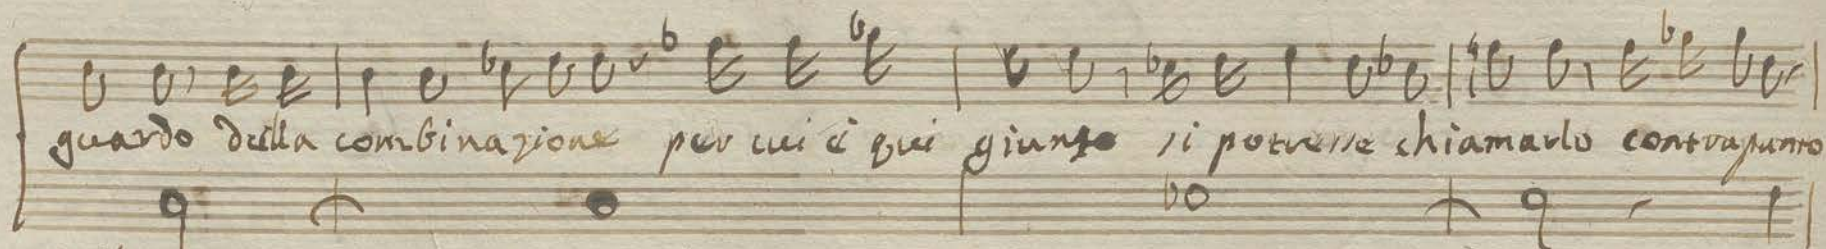 guardo della combinazione per cui è qui giunto si potresse chiamarlo contrapunto